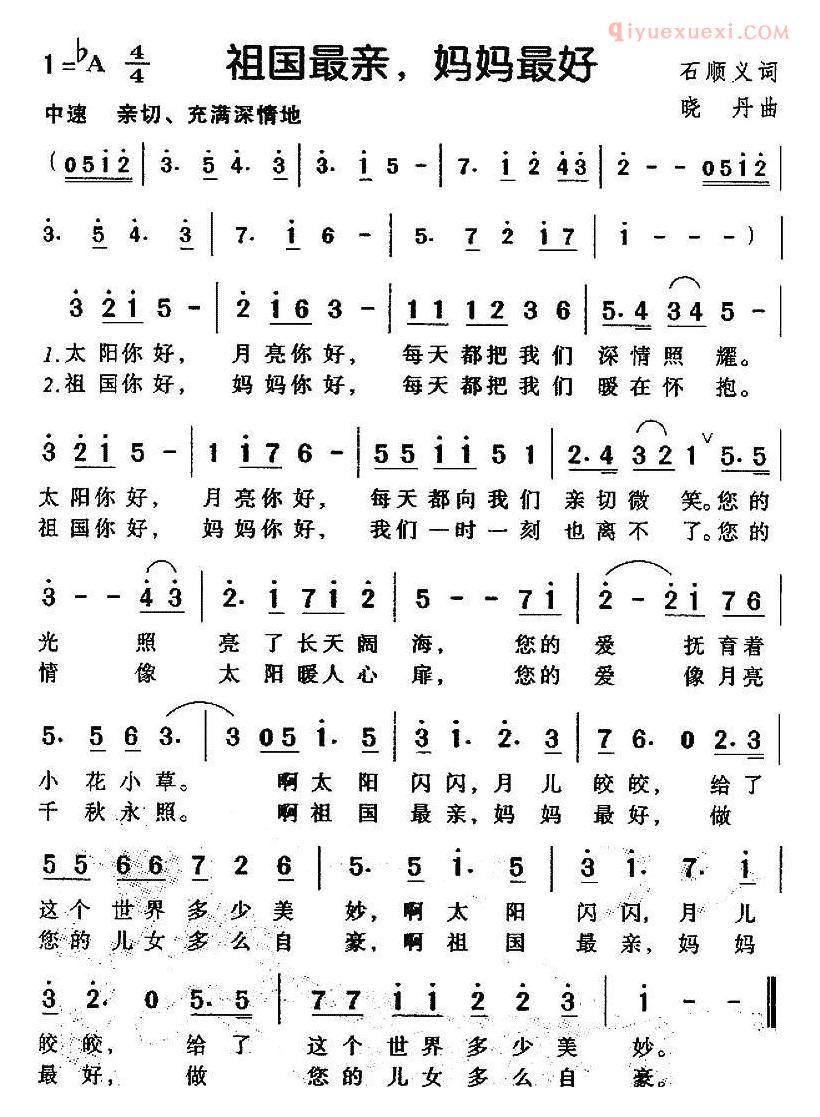 qiyuexuexi.com
1=♭A 4/4 祖国最亲，妈妈最好 石顺义词
晓 丹曲
中速 亲切、充满深情地
( 0 5 1 2 | 3· 5 4· 3 | 3· 1 5 - | 7· 1 2 4 3 | 2 - - 0 5 1 2 |
3· 5 4· 3 | 7· 1 6 - | 5· 7 2 1 7 | 1 - - - ) |
3 2 1 5 - | 2 1 6 3 - | 1 1 1 2 3 6 | 5· 4 3 4 5 - |
1.太 阳你好， 月 亮你 好， 每天都把我们 深情照 耀。
2.祖 国你好， 妈 妈你 好， 每天都把我们 暖在怀 抱。
3 2 1 5 - | 1 1 7 6 - | 5 5 1 1 5 1 | 2· 4 3 2 1 ∨ 5· 5 |
太 阳你 好， 月 亮你 好， 每天都向我们 亲切微 笑。您的
祖 国你 好， 妈 妈你 好， 我们一时一刻 也离不 了。您的
3 - - 4 3 | 2· 1 7 1 2 | 5 - - 7 1 | 2 - 2 1 7 6 |
光 照 亮 了 长天 阔 海， 您的 爱 抚 育着
情 像 太 阳暖人心 扉， 您的 爱 像月亮
5· 5 6 3· | 3 0 5 1· 5 | 3 1· 2· 3 | 7 6· 0 2· 3 |
小 花 小 草。 啊太 阳 闪 闪，月 儿 皎 皎， 给了
千 秋 永 照。 啊祖 国 最 亲，妈 妈 最 好， 做
5 5 6 6 7 2 6 | 5· 5 1· 5 | 3 1· 7· 1 |
这个 世界 多 少 美 妙，啊 太 阳 闪 闪，月 儿
您的 儿女 多 么 自 豪，啊 祖 国 最 亲，妈 妈
3 2· 0 5· 5 | 7 7 1 1 2 2 3 | 1 - - ‖
皎 皎， 给了 这个 世界多少美 妙。
最 好， 做 您的 儿女多么自 豪。